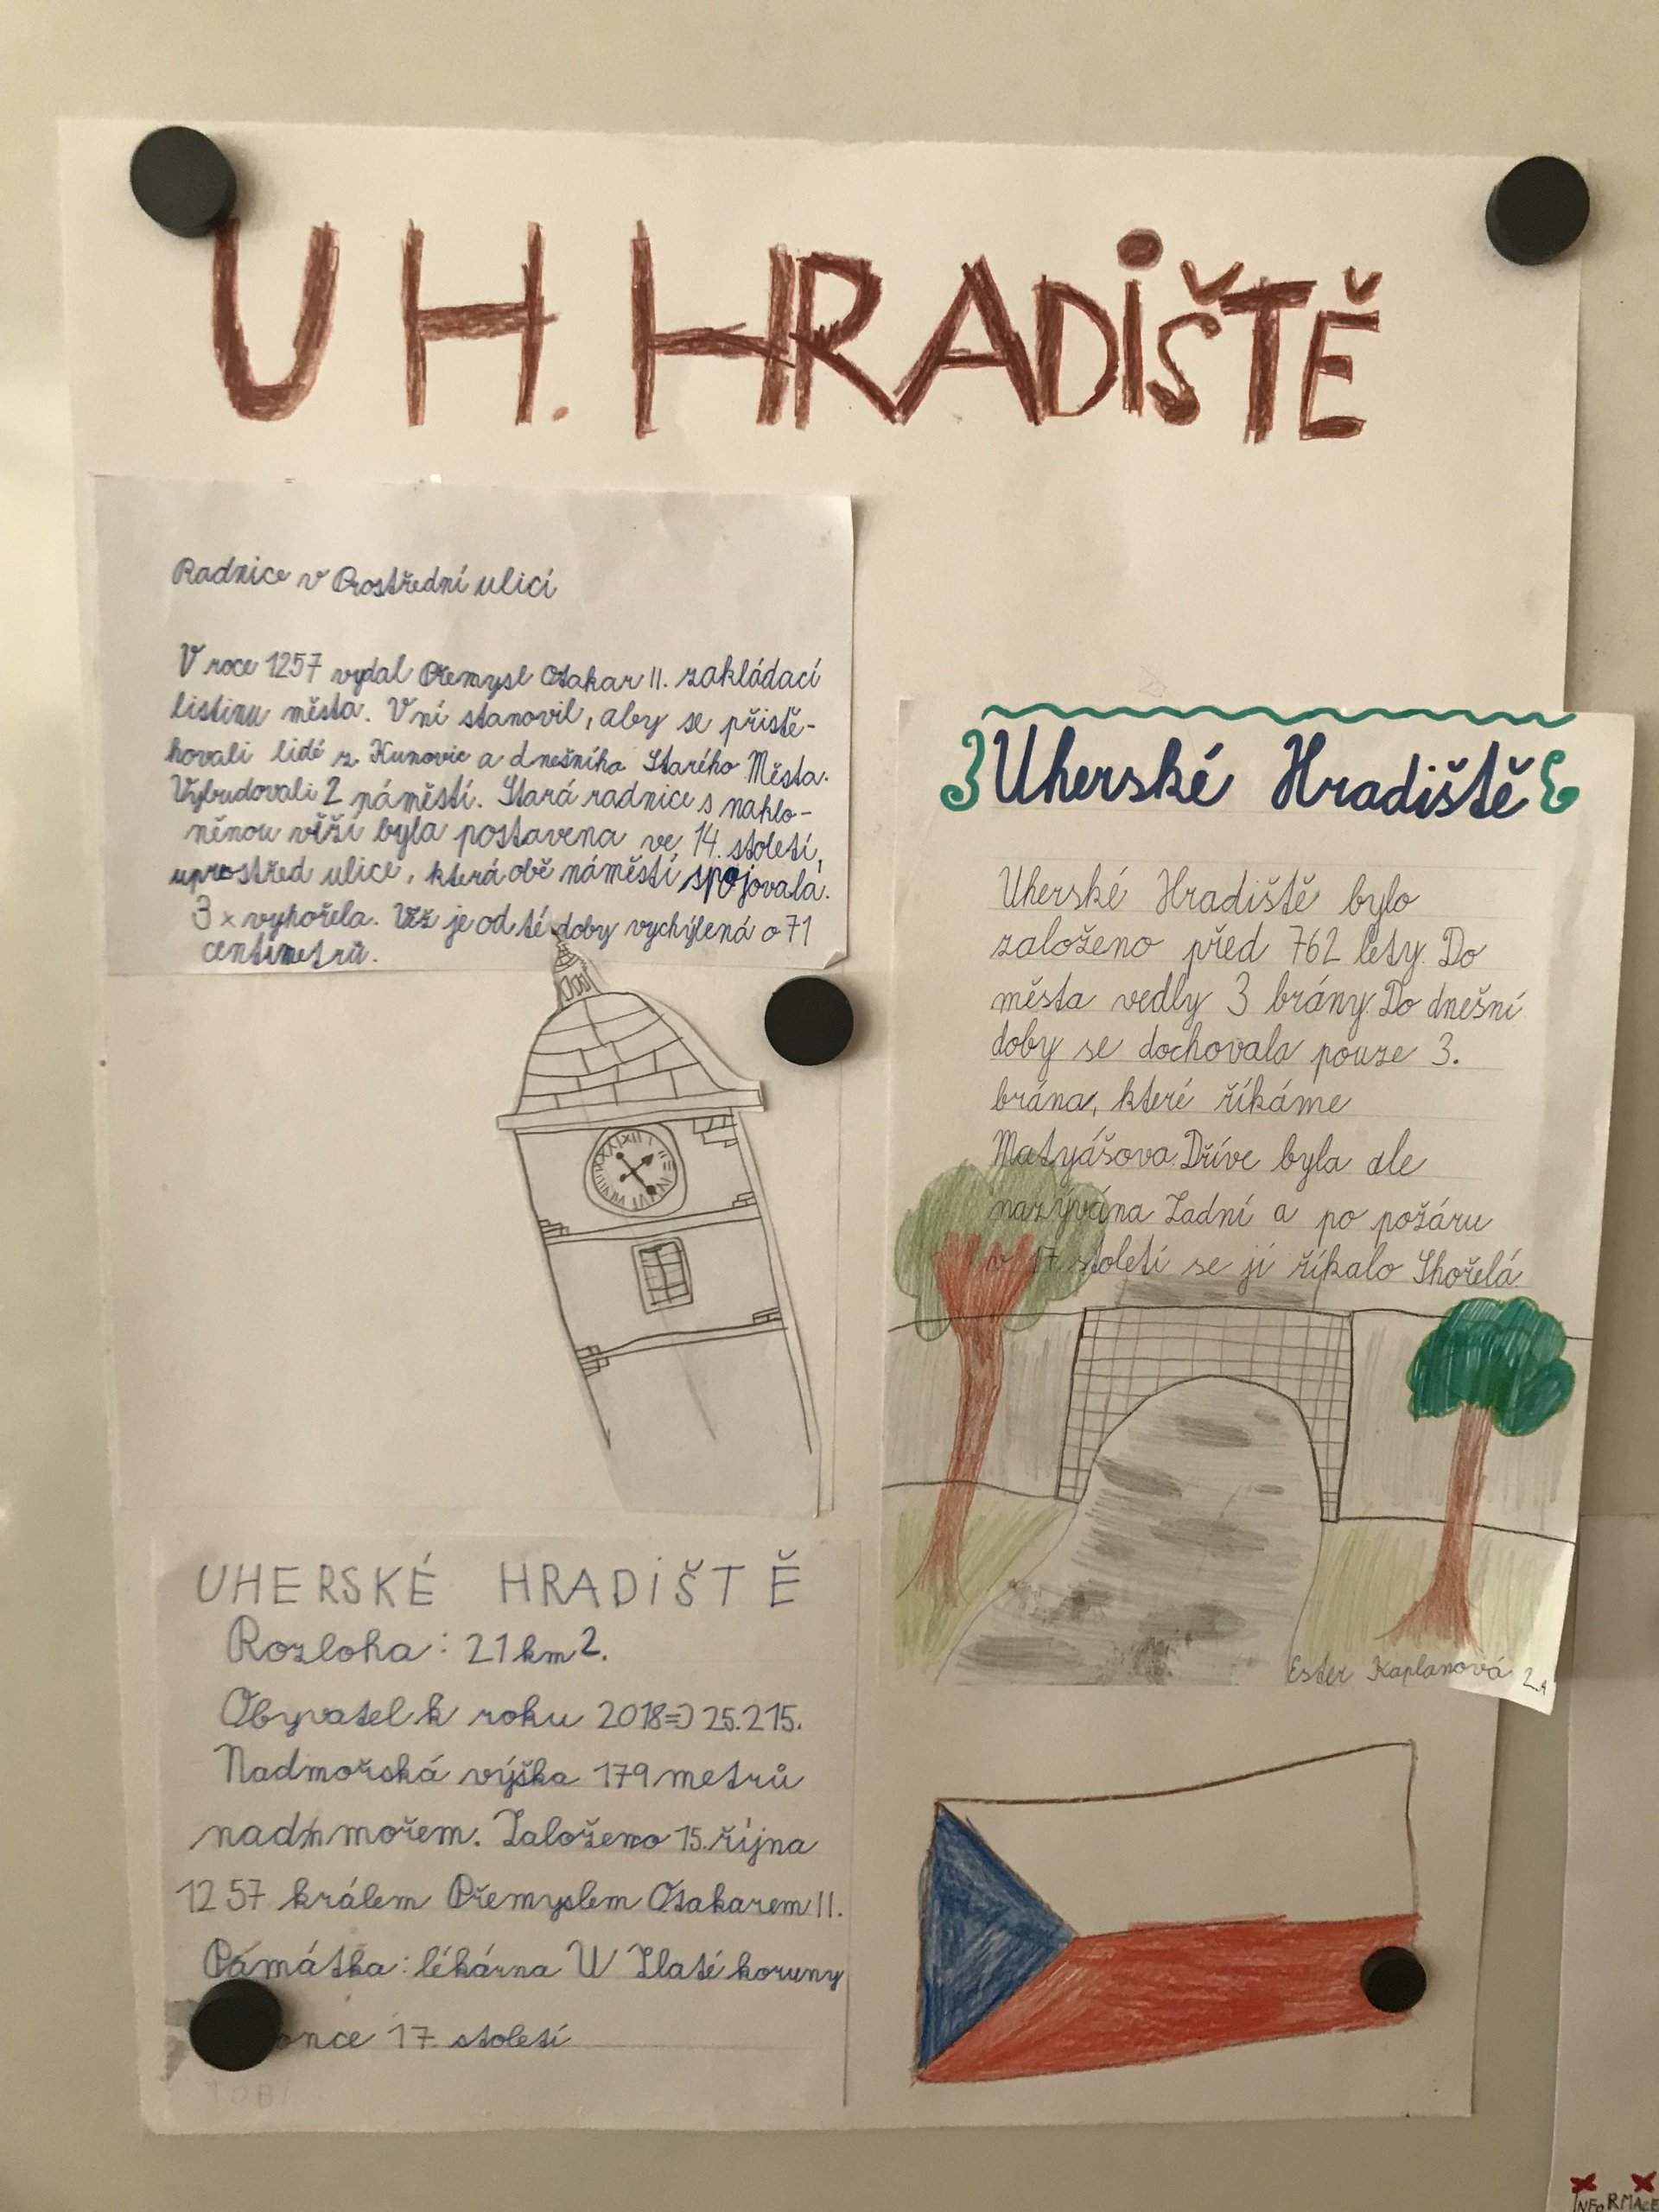 UH. HRADiŠTĚ
Radnice v Prostřední ulici
V roce 1257 vydal Přemysl Otakar II. zakládací
listinu města. V ní stanovil, aby se přistě-
hovali lidé z Kunovic a dnešního Starého Města.
Vybudovali 2 náměstí. Stará radnice s naklo-
něnou věží byla postavena ve 14. století,
uprostřed ulice, která obě náměstí spojovala.
3 x vyhořela. Věž je od té doby vychýlená o 71
centimetrů.
Uherské Hradiště
Uherské Hradiště bylo
založeno před 762 lety. Do
města vedly 3 brány. Do dnešní
doby se dochovala pouze 3.
brána, které říkáme
Matyášova. Dříve byla ale
nazývána Zadní a po požáru
v 17. století se jí říkalo Shořelá.
Ester Kaplanová 2.A
UHERSKÉ HRADiŠTĚ
Rozloha: 21 km2.
Obyvatel k roku 2018=) 25.215.
Nadmořská výška 179 metrů
nad mořem. Založeno 15. října
1257 králem Přemyslem Otakarem II.
Památka: lékárna U Zlaté koruny
17. století
TOBI
INFORMACE